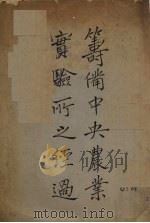 籌備中央農業
實驗所之經過